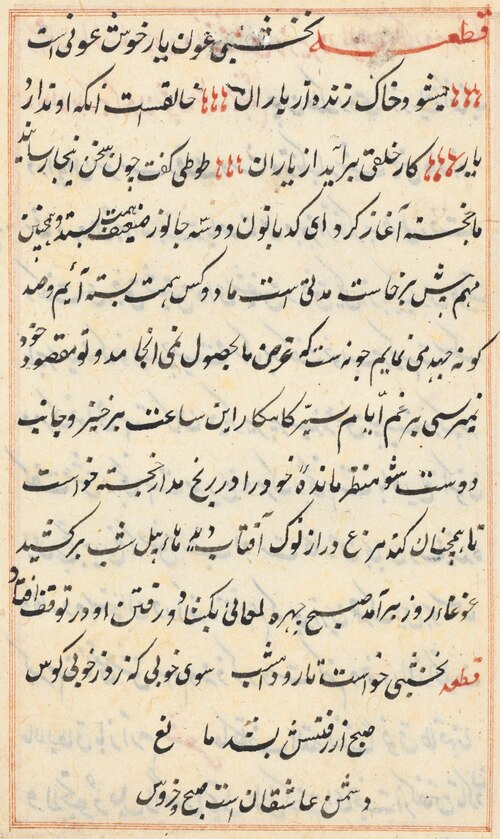 قطعه نخشبی عون یار خوش عونی است
میشود خاک زنده از یاران خالقست آنکه او ندارد
یار کار خلقی برآید از یاران طوطی گفت چون سخن اینجا رسانید
ماخجسته آغاز کرد ای کدبانون دو سه جانور ضعیف همت بستند و همچنین
مهم پیش برخاست مدتی است ما دو کس همت بسته آئیم و صد
گونه جهد می نمایم چونست که غرض ما بحصول نمی انجامد و تو بمقصود خود
نمیرسی برغم ایام ستیز کامکار این ساعت برخیز و جانب
دوست شو منتظر مانده خود را در رنج مدار خجسته خواست
تا همچنان کند مرغ دراز نوک آفتاب ماهی بیل شب برکشید
غوغاء روز برآمد صبح چهره لمعانی بکشاد و رفتن او در توقف افتاد
قطعه نخشبی خواست تا رود امشب سوی خوبی که زد ز خوبی کوس
صبح از رفتنش بشد مانع
دشمن عاشقان است صبح و خروس